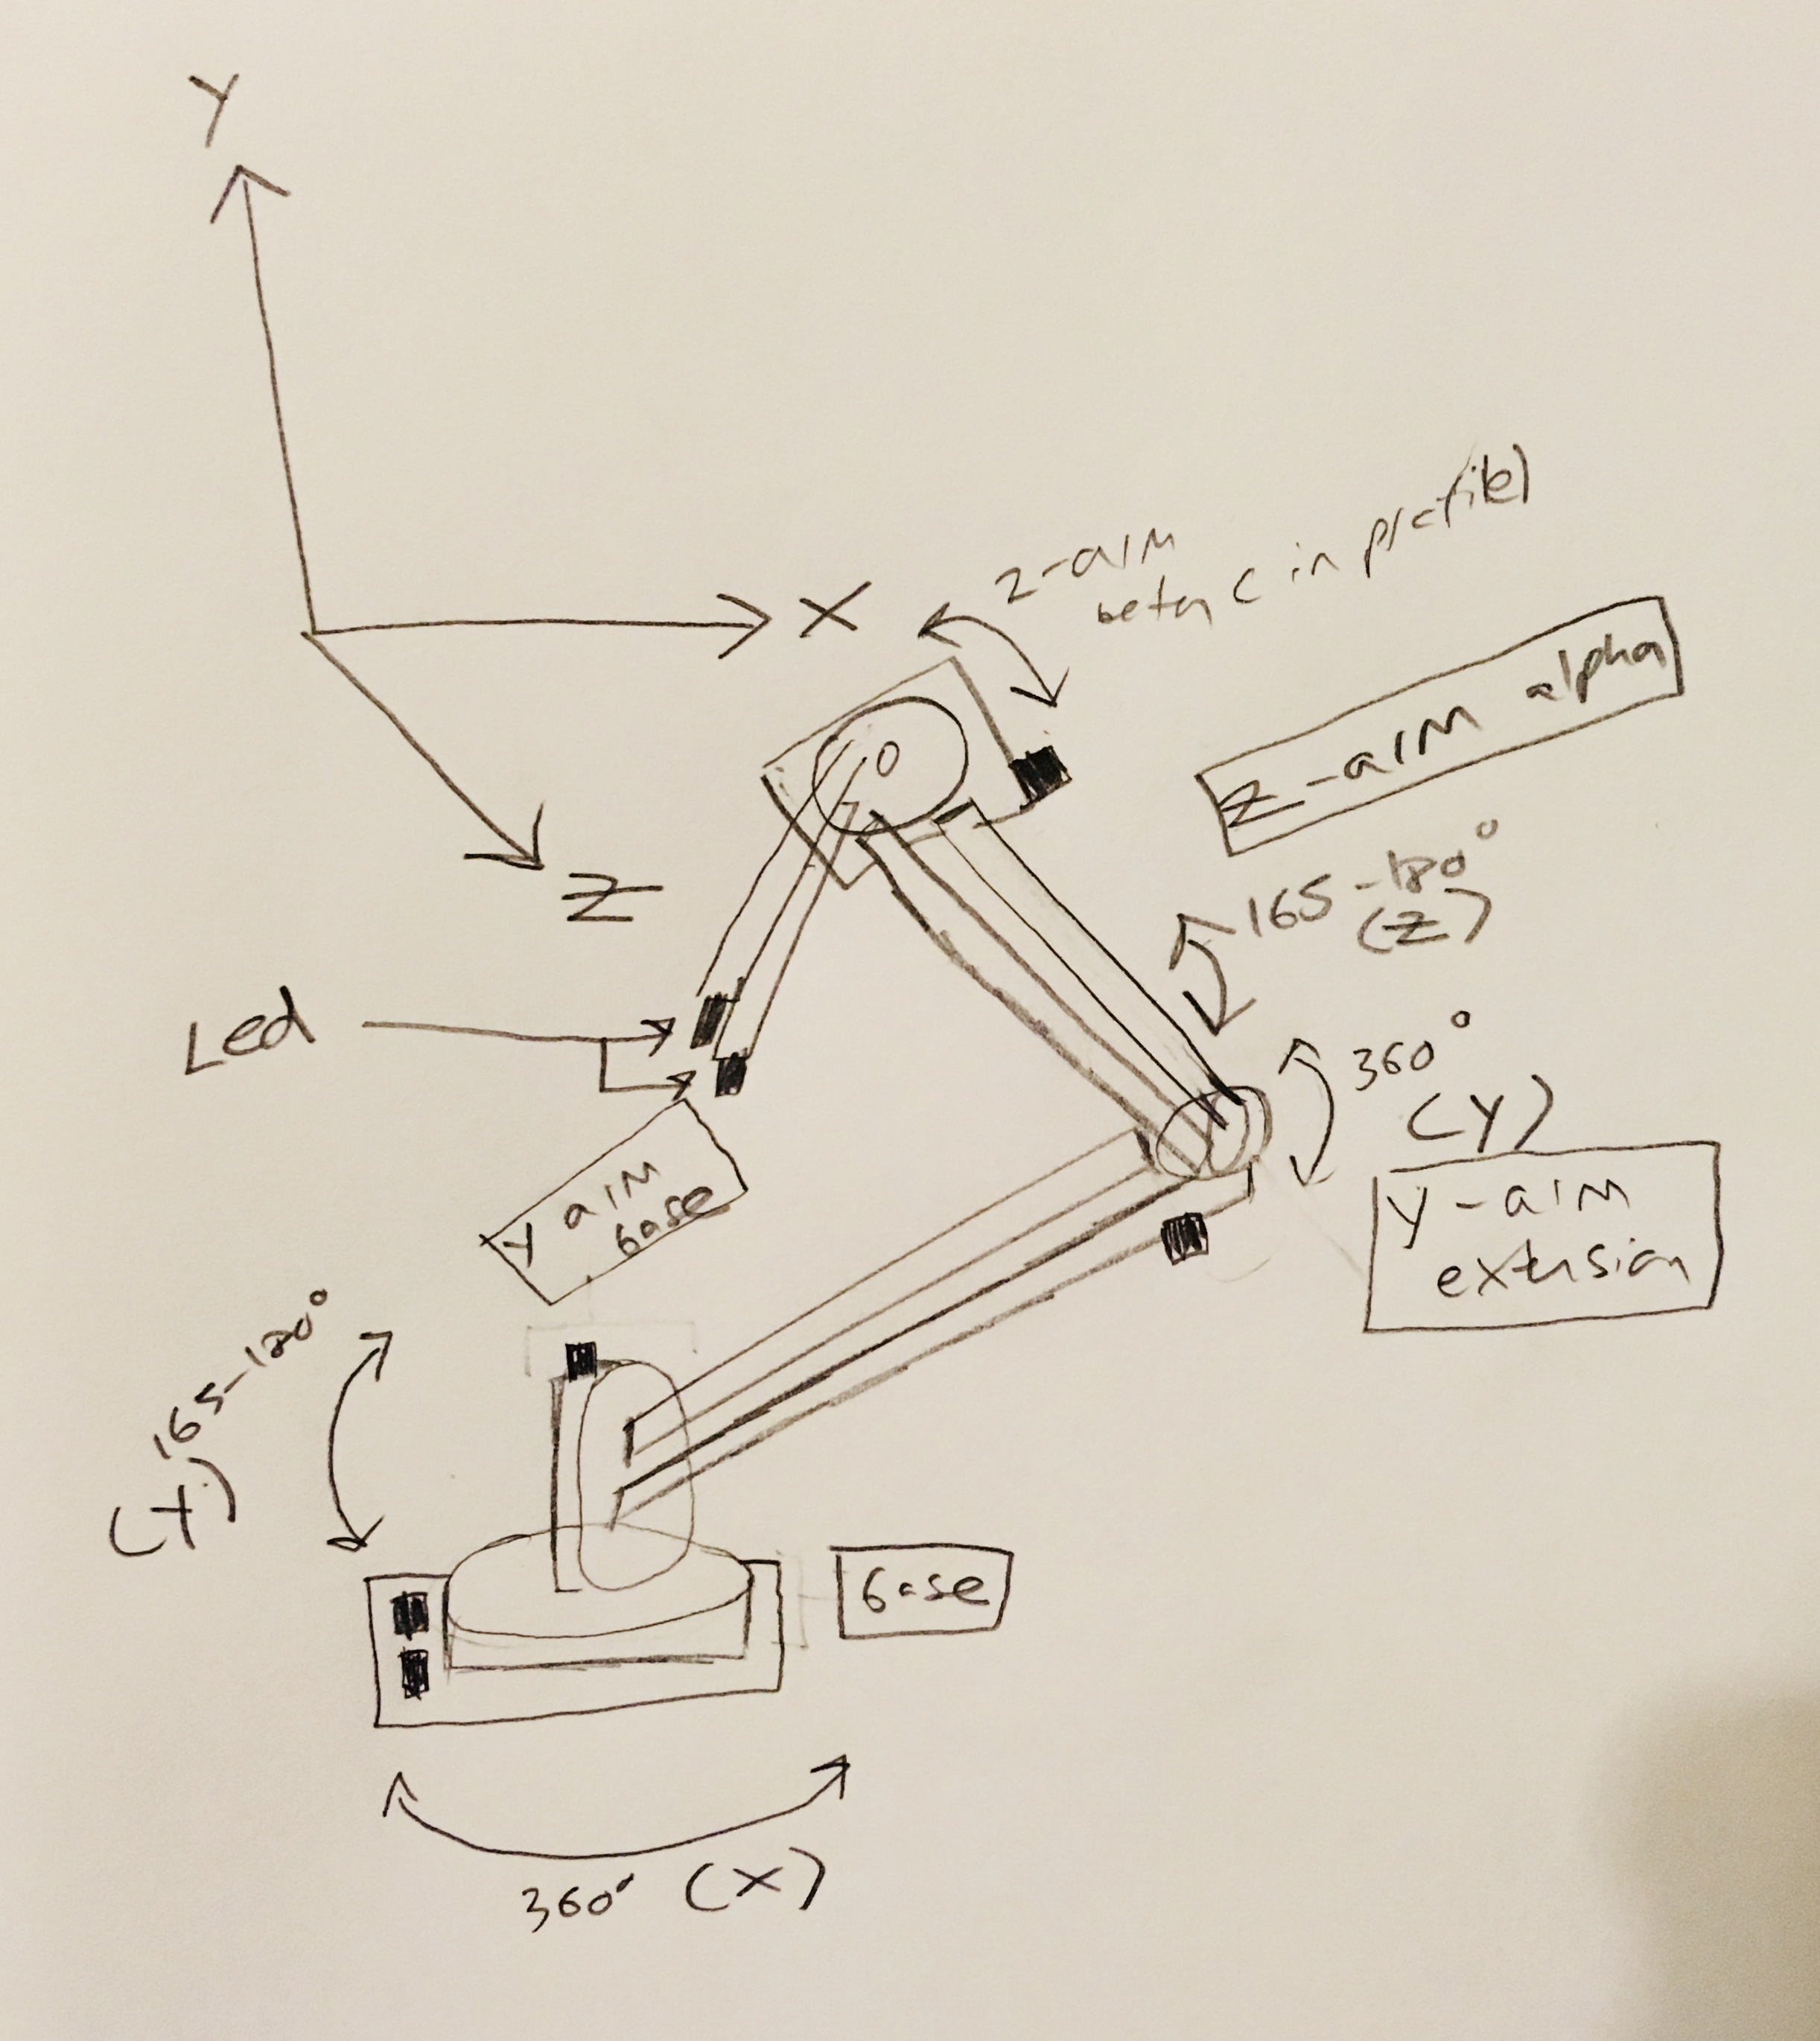 Y
X
Z
z-arm
beta (in profile)
z-arm alpha
165-180°
(z)
Led
360°
(Y)
Y-arm
extension
Y arm
base
165-180°
(Y)
base
360° (X)